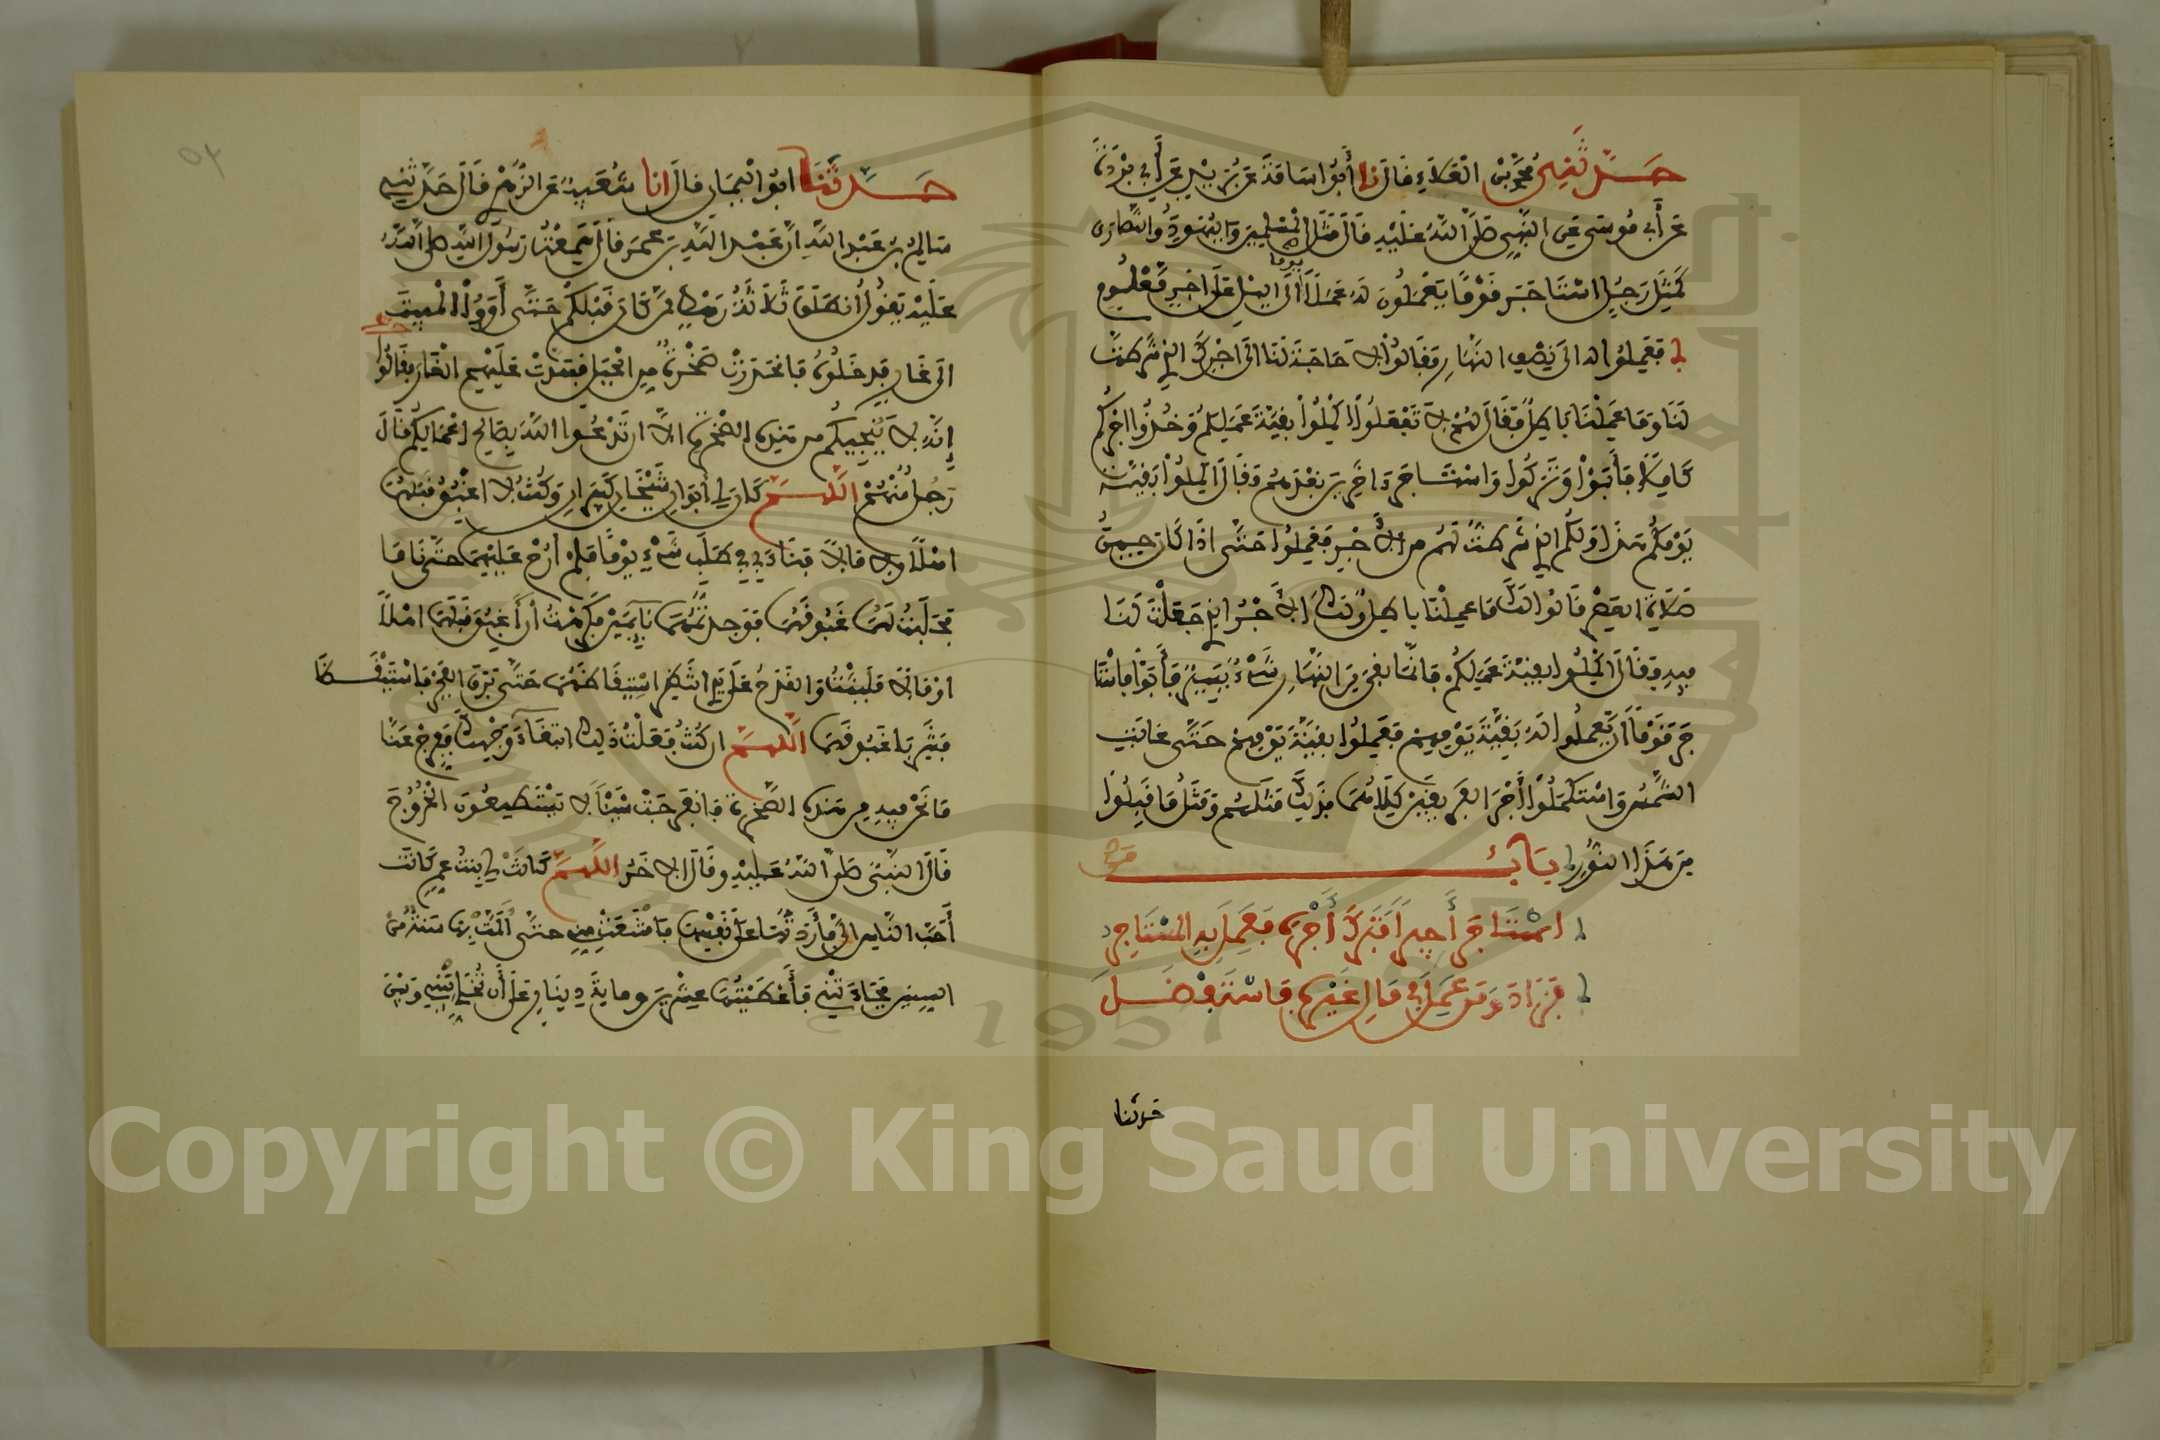 حدثني محمد بن العلاء قال نا أبو أسامة عن بريد عن أبي بردة
عن أبي موسى عن النبي صلى الله عليه قال مثل المسلمين واليهود والنصارى
كمثل رجل استاجر قوما يعملون له عملا يوما الى اليل على اجر معلوم
فعملوا له الى نصف النهار فقالوا لا حاجة لنا الى اجرك الذي شرطت
لنا وما عملنا باطل فقال لهم لا تفعلوا اكملوا بقية عملكم وخذوا اجركم
كاملا فأبوا وتركوا واستاجر اخرين بعدهم فقال اكملوا بقية
يومكم هذا ولكم الذي شرطت لهم من الأجر فعملوا حتى اذا كان حين
صلاة العصر قالوا لك ما عملنا باطل ولك الأجر الذي جعلت لنا
فيه فقال اكملوا بقية عملكم فانما بقي من النهار شيء يسير فأبوا فاستا
جر قوما أن يعملوا له بقية يومهم فعملوا بقية يومهم حتى غابت
الشمس واستكملوا أجر الفريقين كليهما فذلك مثلهم ومثل ما قبلوا
من هذا النور باب من
استاجر أجيرا فترك أجره فعمل به المستاجر
فزاد ومن عمل في مال غيره فاستفضل
حدثنا
٥٢
حدثنا ابو اليمان قال انا شعيب عن الزهري قال حدثني
سالم بن عبد الله ان عبد الله بن عمر قال سمعت رسول الله صلى الله
عليه يقول انطلق ثلاثة رهط ممن كان قبلكم حتى أووا المبيت
الى غار فدخلوه فانحدرت صخرة من الجبل فسدت عليهم الغار فقالوا
إنه لا ينجيكم من هذه الصخرة الا ان تدعوا الله بصالح اعمالكم قال
رجل منهم اللهم كان لي أبوان شيخان كبيران وكنت لا اغبق قبلهما
اهلا ولا مالا فنأى بي في طلب شيء يوما فلم أرح عليهما حتى ناما
فحلبت لهما غبوقهما فوجدتهما نائمين فكرهت أن أغبق قبلهما اهلا
او مالا فلبثت والقدح على يدي انتظر استيقاظهما حتى برق الفجر فاستيقظا
فشربا غبوقهما اللهم ان كنت فعلت ذلك ابتغاء وجهك ففرج عنا
ما نحن فيه من هذه الصخرة فانفرجت شيئا لا يستطيعون الخروج
قال النبي صلى الله عليه وقال الاخر اللهم كانت لي بنت عم كانت
أحب الناس الي فأردتها على نفسها فامتنعت مني حتى ألمت بها سنة من
السنين فجاءتني فأعطيتها عشرين وماية دينار على أن تخلي بيني وبين
Copyright © King Saud University
1957